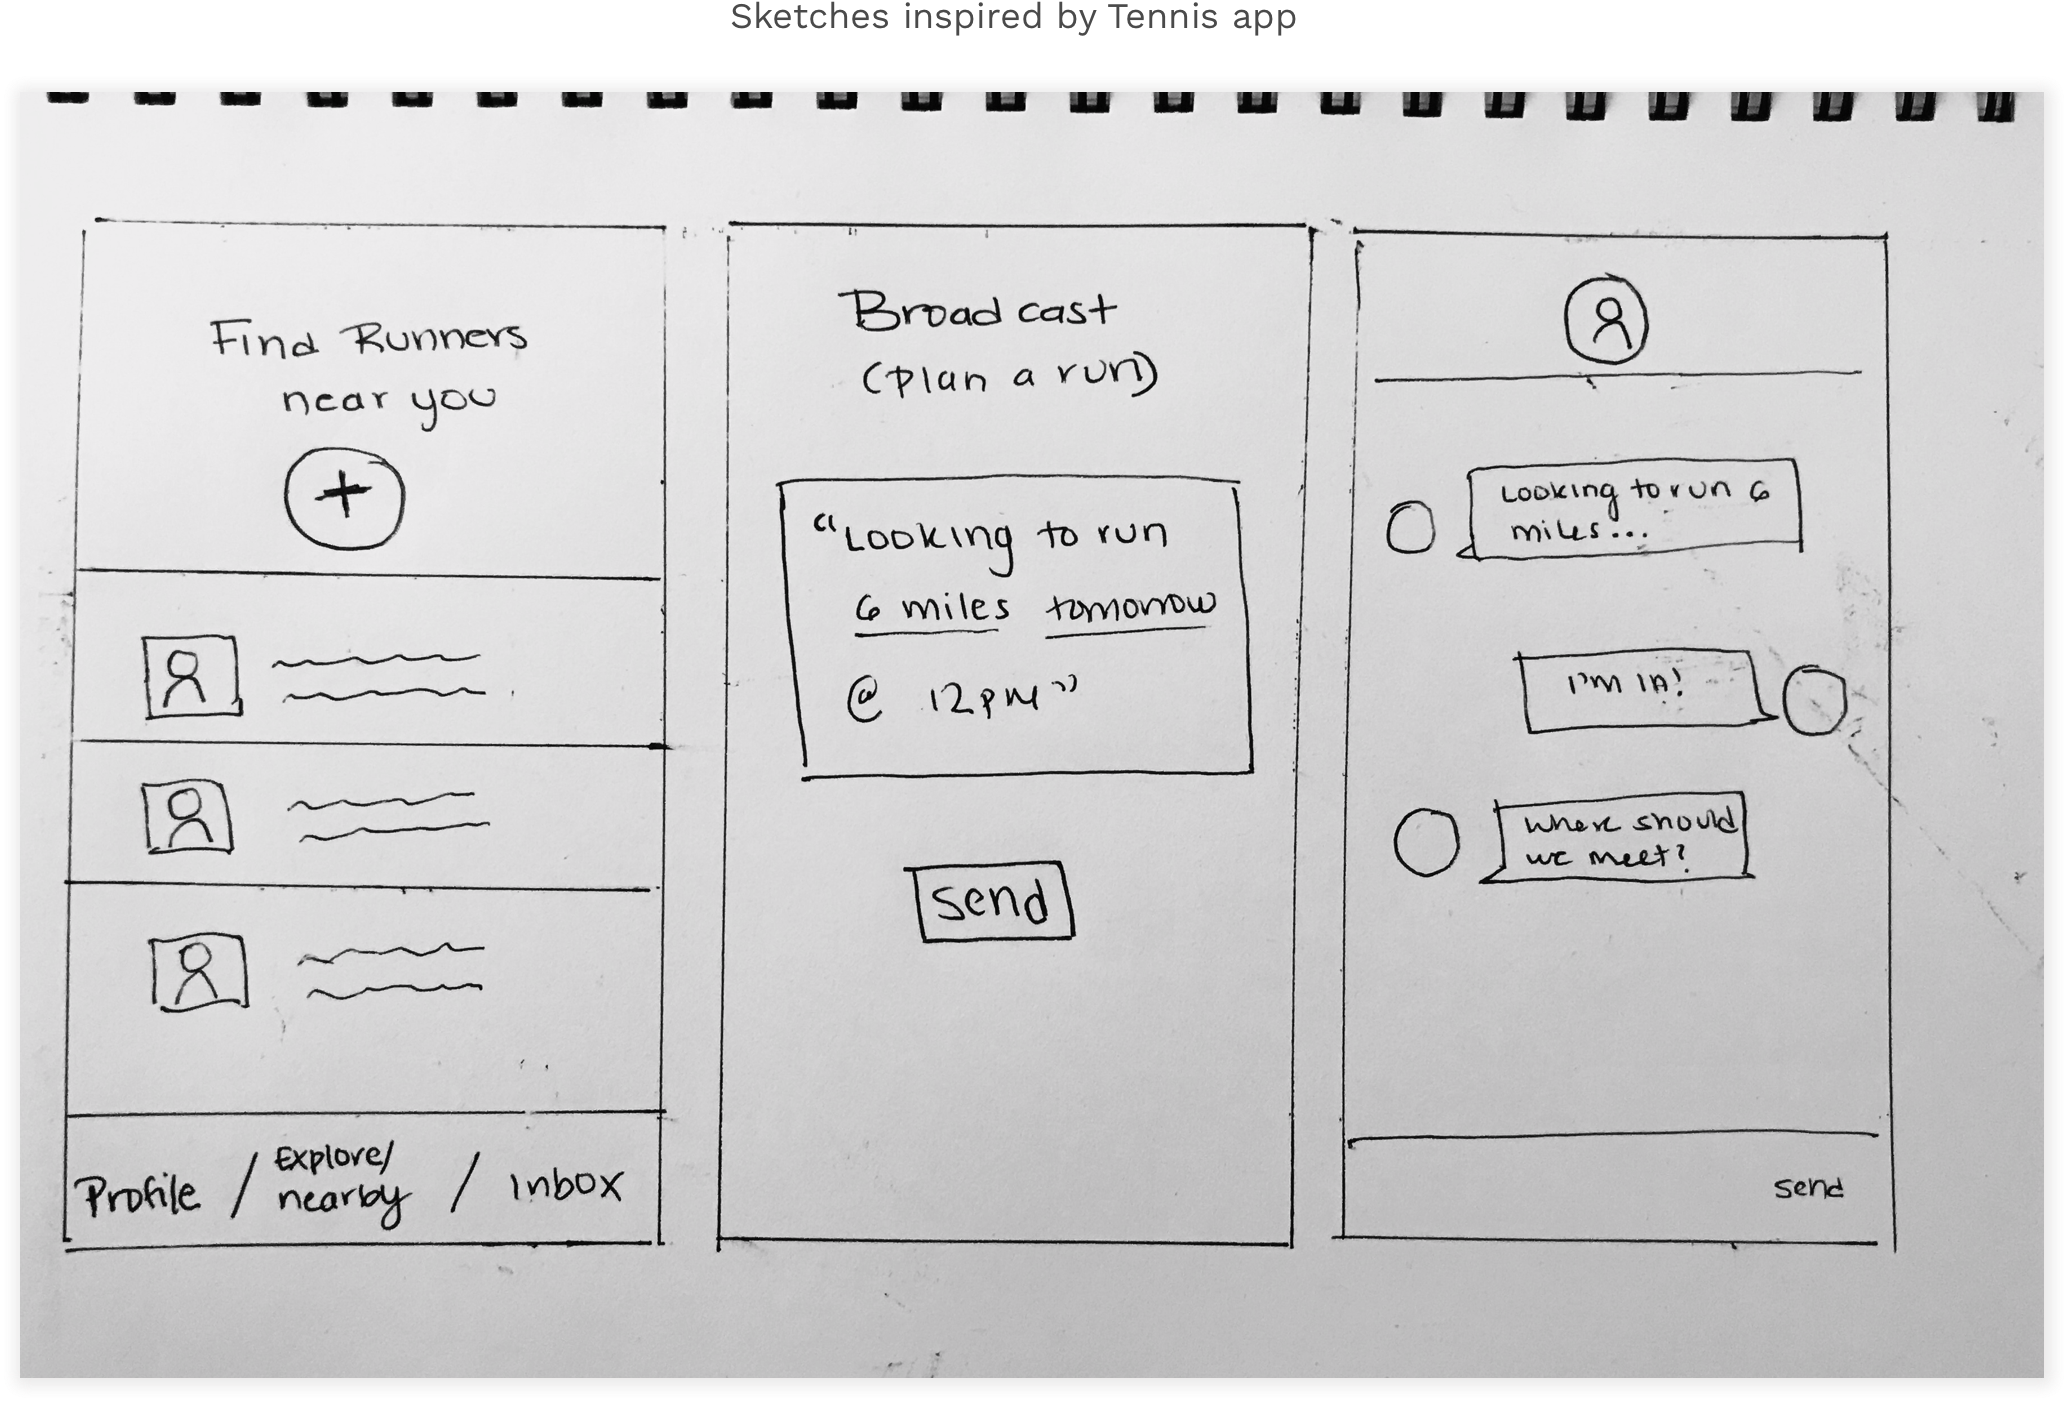 Sketches inspired by Tennis app
Find Runners
near you
+
Profile / Explore/
nearby / Inbox
Broadcast
(plan a run)
"Looking to run
6 miles tomorrow
@ 12pm"
send
Looking to run 6
miles...
I'm in!
where should
we meet?
send